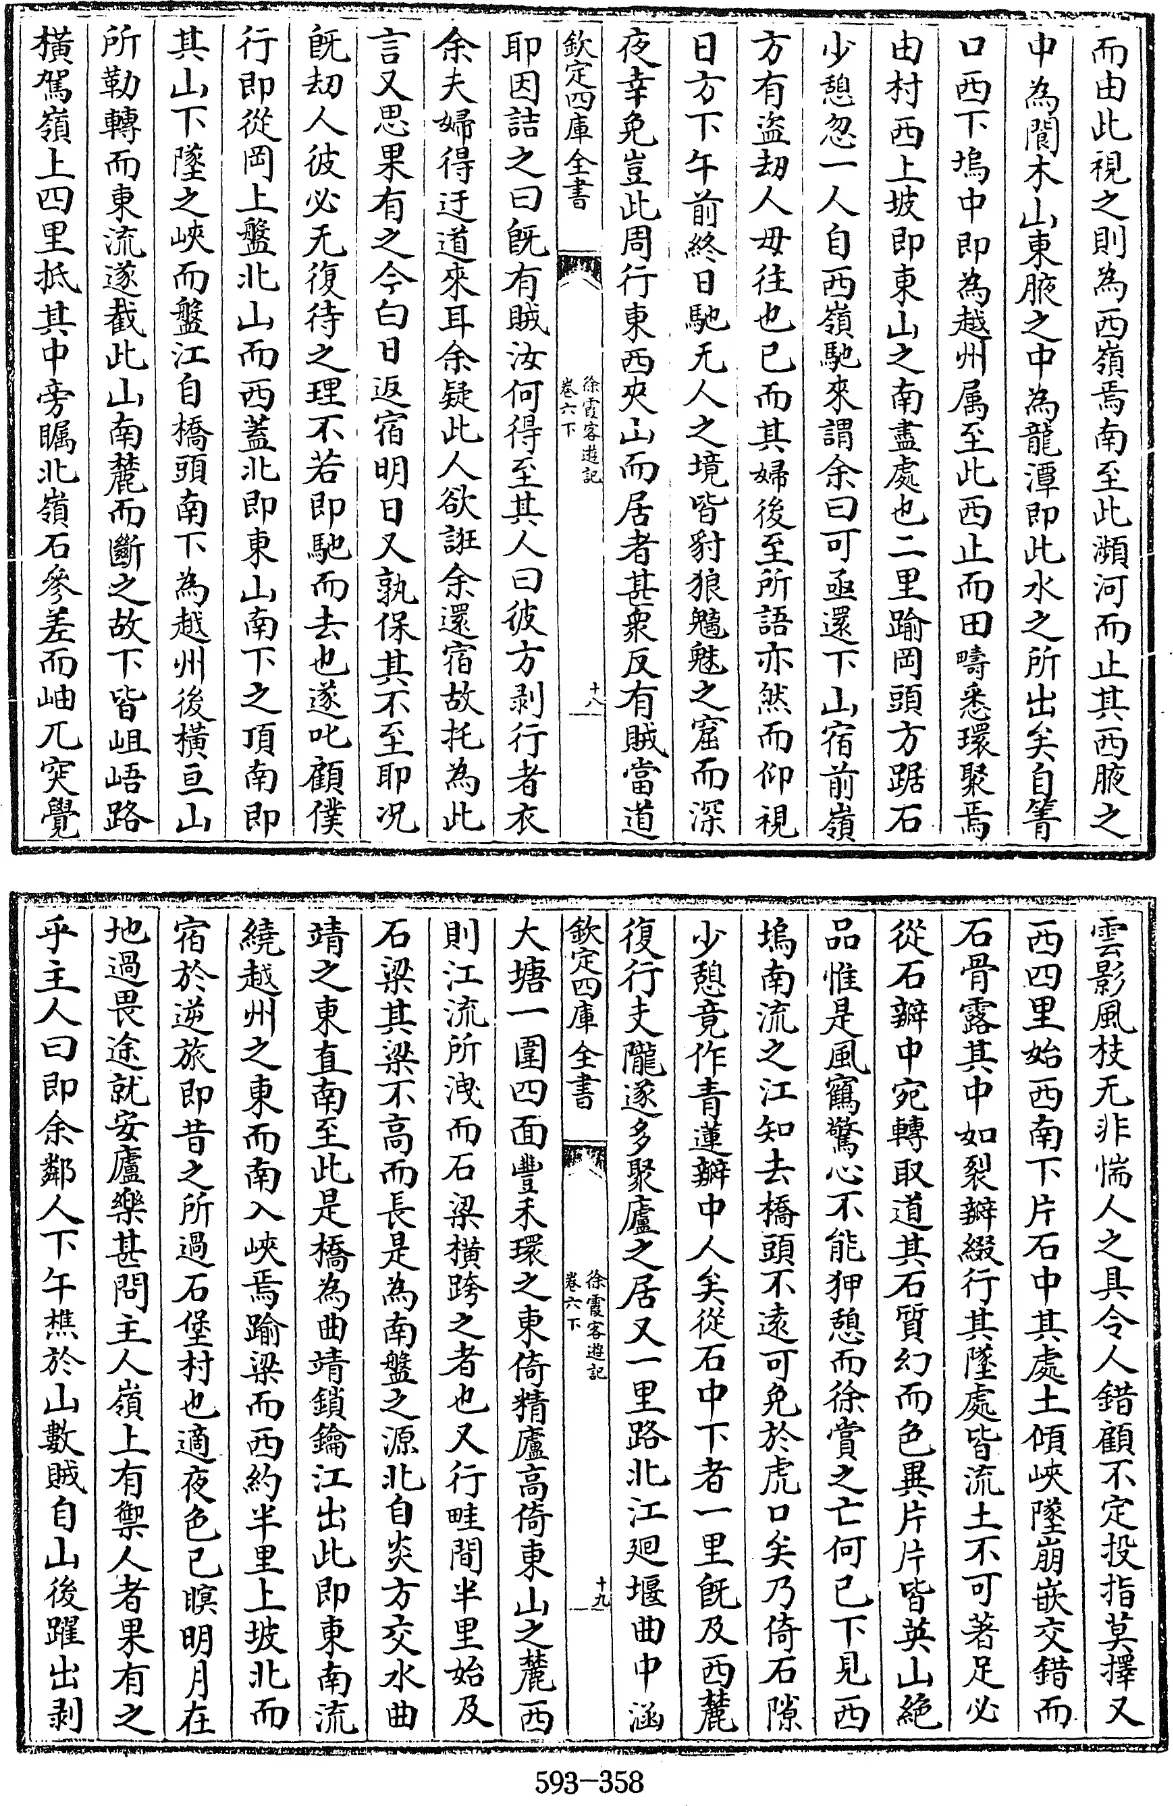 而由此視之則為西嶺焉南至此瀕河而止其西腋之
中為閬木山東腋之中為龍潭即此水之所出矣自箐
口西下塢中即為越州属至此西止而田疇悉環聚焉
由村西上坡即東山之南盡處也二里踰岡頭方踞石
少憩忽一人自西嶺馳來謂余曰可亟還下山宿前嶺
方有盜刼人毋往也已而其婦後至所語亦然而仰視
日方下午前終日馳无人之境皆豺狼魑魅之窟而深
夜幸免豈此周行東西夾山而居者甚衆反有賊當道
欽定四庫全書
徐霞客遊記
卷六下
十八
耶因詰之曰旣有賊汝何得至其人曰彼方剥行者衣
余夫婦得迂道來耳余疑此人欲誑余還宿故托為此
言又思果有之今白日返宿明日又孰保其不至耶况
旣刼人彼必无復待之理不若即馳而去也遂叱顧僕
行即從岡上盤北山而西蓋北即東山南下之頂南即
其山下墜之峽而盤江自橋頭南下為越州後橫亘山
所勒轉而東流遂截此山南麓而斷之故下皆岨峿路
橫駕嶺上四里抵其中旁矚北嶺石參差而岫兀突覺
雲影風枝无非惴人之具令人錯顧不定投指莫擇又
西四里始西南下片石中其處土傾峽墜崩嵌交錯而
石骨露其中如裂瓣綴行其墜處皆流土不可著足必
從石瓣中宛轉取道其石質幻而色異片片皆英山絶
品惟是風寉驚心不能狎憩而徐賞之亡何已下見西
塢南流之江知去橋頭不遠可免於虎口矣乃倚石隙
少憩竟作青蓮瓣中人矣從石中下者一里旣及西麓
復行支隴遂多聚廬之居又一里路北江廻堰曲中涵
欽定四庫全書
徐霞客遊記
卷六下
十九
大塘一圍四面豐禾環之東倚精廬高倚東山之麓西
則江流所洩而石梁橫跨之者也又行畦間半里始及
石梁其梁不高而長是為南盤之源北自炎方交水曲
靖之東直南至此是橋為曲靖鎖鑰江出此即東南流
繞越州之東而南入峽焉踰梁而西約半里上坡北而
宿於逆旅即昔之所過石堡村也適夜色已暝明月在
地過畏途就安廬樂甚問主人嶺上有禦人者果有之
乎主人曰即余鄰人下午樵於山數賊自山後躍出剥
593-358